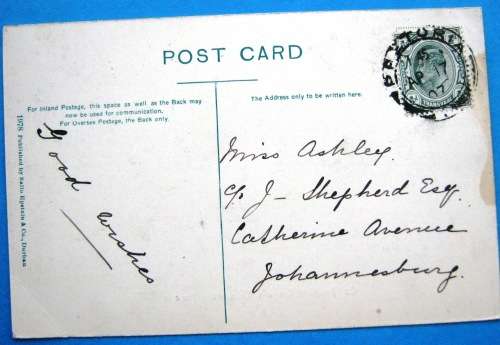 POST CARD
For Inland Postage, this space as well as the Back may
now be used for communication.
For Oversea Postage, the Back only.
The Address only to be written here.
1978 Published by Sallo Epstein & Co., Durban
Good
wishes
Miss Ashley.
c/o J - Shepherd Esq.
Catherine Avenue
Johannesburg.
PRETORIA
AP 17
07